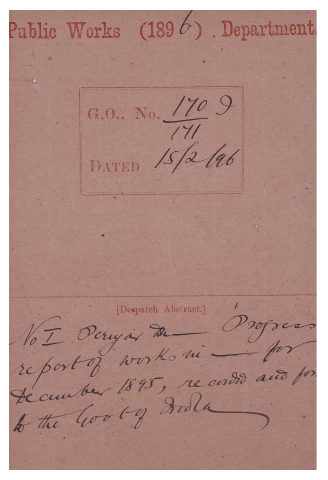 Public Works (1896) Department.
G.O., No. 170 I
171
DATED 15/2/96
[Despatch Abstract.]
No I Periyar Progress
report of works in — for
December 1895, recorded and for
to the Govt of India